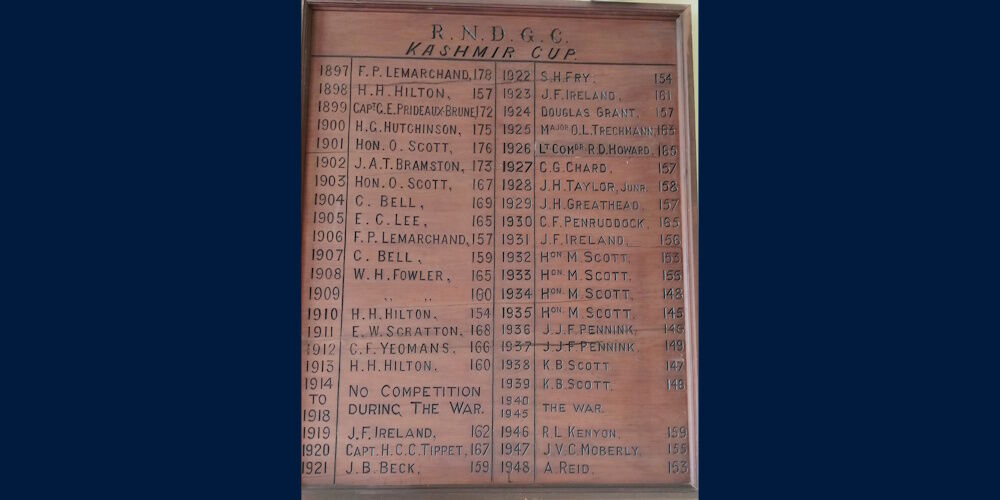 R.N.D.G.C.
KASHMIR CUP.
1897 F.P. LEMARCHAND, 178
1898 H.H. HILTON, 157
1899 CAPT C.E. PRIDEAUX-BRUNE 172
1900 H.G. HUTCHINSON, 175
1901 HON. O. SCOTT, 176
1902 J.A.T. BRAMSTON, 173
1903 HON. O. SCOTT, 167
1904 C. BELL, 169
1905 E.C. LEE, 165
1906 F.P. LEMARCHAND, 157
1907 C. BELL, 159
1908 W.H. FOWLER, 165
1909 ,, ,, 160
1910 H.H. HILTON, 154
1911 E.W. SCRATTON, 168
1912 C.F. YEOMANS. 166
1913 H.H. HILTON. 160
1914 TO 1918 NO COMPETITION
DURING THE WAR.
1919 J.F. IRELAND, 162
1920 CAPT. H.C.C. TIPPET, 167
1921 J.B. BECK, 159
1922 S.H. FRY. 154
1923 J.F. IRELAND, 161
1924 DOUGLAS GRANT, 157
1925 MAJOR O.L. TRECHMANN, 163
1926 LT COMDR. R.D. HOWARD, 165
1927 C.G. CHARD, 157
1928 J.H. TAYLOR, JUNR. 158
1929 J.H. GREATHEAD, 157
1930 C.F. PENRUDDOCK, 165
1931 J.F. IRELAND, 156
1932 HON M. SCOTT, 153
1933 HON. M. SCOTT, 155
1934 HON. M. SCOTT,
1935 HON. M. SCOTT, 145
1936 J.J.F. PENNINK,
1937 J.J.F. PENNINK, 149
1938 K.B. SCOTT, 147
1939 K.B. SCOTT,
1940 1945 THE WAR.
1946 R.L. KENYON, 159
1947 J.V.C. MOBERLY, 155
1948 A. REID, 153